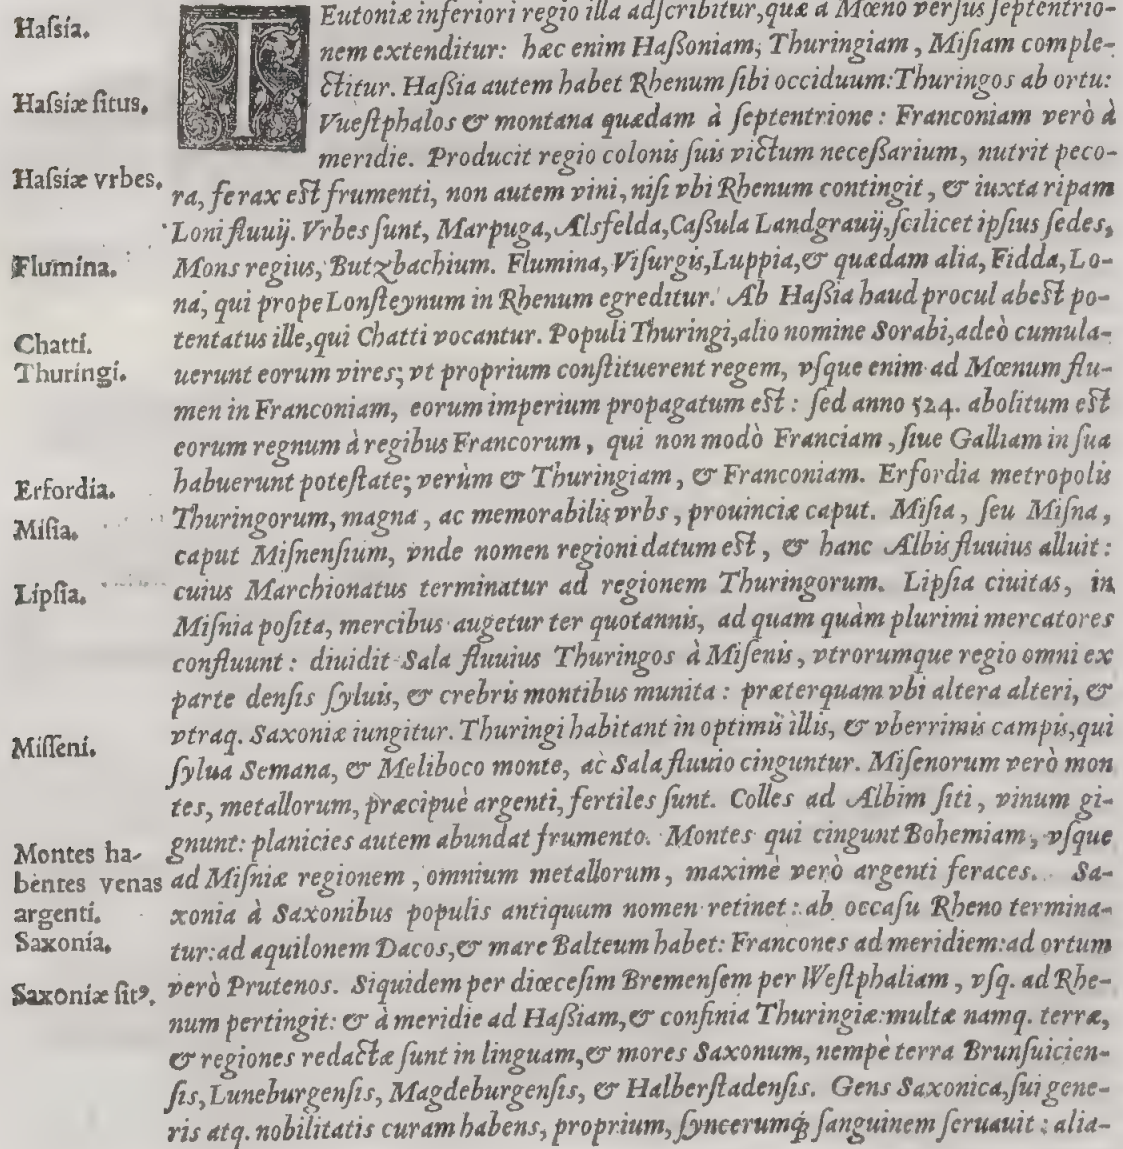 Haſsía.
Haſsíæ ſitus.
Haſsíæ vrbes.
Flumína.
Chattí.
Thuríngí.
Erfordía.
Míſia.
Lípſia.
Míſſení.
Montes ha-
bentes venas
argentí.
Saxonía.
Saxoníæ ſitꝰ.
TEutoniæ inferiori regio illa adſcribitur, quæ a Mœno verſus ſeptentrio-
nem extenditur: hæc enim Haßoniam, Thuringiam, Miſiam comple-
ctitur. Haßia autem habet Rhenum ſibi occiduum: Thuringos ab ortu:
Vueſtphalos & montana quædam à ſeptentrione: Franconiam verò à
meridie. Producit regio colonis ſuis victum neceßarium, nutrit peco-
ra, ferax eſt frumenti, non autem vini, niſi vbi Rhenum contingit, & iuxta ripam
Loni fluuij. Vrbes ſunt, Marpuga, Alsfelda, Caßula Landgrauij, ſcilicet ipſius ſedes,
Mons regius, Butzbachium. Flumina, Viſurgis, Luppia, & quædam alia, Fidda, Lo-
na, qui prope Lonſteynum in Rhenum egreditur. Ab Haßia haud procul abeſt po-
tentatus ille, qui Chatti vocantur. Populi Thuringi, alio nomine Sorabi, adeò cumula-
uerunt eorum vires; vt proprium conſtituerent regem, vſque enim ad Mœnum flu-
men in Franconiam, eorum imperium propagatum eſt: ſed anno 524. abolitum eſt
eorum regnum à regibus Francorum, qui non modò Franciam, ſiue Galliam in ſua
habuerunt poteſtate; verùm & Thuringiam, & Franconiam. Erfordia metropolis
Thuringorum, magna, ac memorabilis vrbs, prouinciæ caput. Miſia, ſeu Miſna,
caput Miſnenſium, vnde nomen regioni datum eſt, & hanc Albis fluuius alluit:
cuius Marchionatus terminatur ad regionem Thuringorum. Lipſia ciuitas, in
Miſnia poſita, mercibus augetur ter quotannis, ad quam quàm plurimi mercatores
confluunt: diuidit Sala fluuius Thuringos à Miſenis, vtrorumque regio omni ex
parte denſis ſyluis, & crebris montibus munita: præterquam vbi altera alteri, &
vtraq. Saxoniæ iungitur. Thuringi habitant in optimis illis, & vberrimis campis, qui
ſylua Semana, & Meliboco monte, ac Sala fluuio cinguntur. Miſenorum verò mon
tes, metallorum, præcipuè argenti, fertiles ſunt. Colles ad Albim ſiti, vinum gi-
gnunt: planicies autem abundat frumento. Montes qui cingunt Bohemiam, vſque
ad Miſniæ regionem, omnium metallorum, maximè verò argenti feraces. Sa-
xonia à Saxonibus populis antiquum nomen retinet: ab occaſu Rheno termina-
tur: ad aquilonem Dacos, & mare Balteum habet: Francones ad meridiem: ad ortum
verò Prutenos. Siquidem per diœceſim Bremenſem per Weſtphaliam, vſq. ad Rhe-
num pertingit: & à meridie ad Haßiam, & confinia Thuringiæ: multæ namq. terræ,
& regiones redactæ ſunt in linguam, & mores Saxonum, nempè terra Brunſuicien-
ſis, Luneburgenſis, Magdeburgenſis, & Halberſtadenſis. Gens Saxonica, ſui gene-
ris atq. nobilitatis curam habens, proprium, ſyncerumq́; ſanguinem ſeruauit: alia-